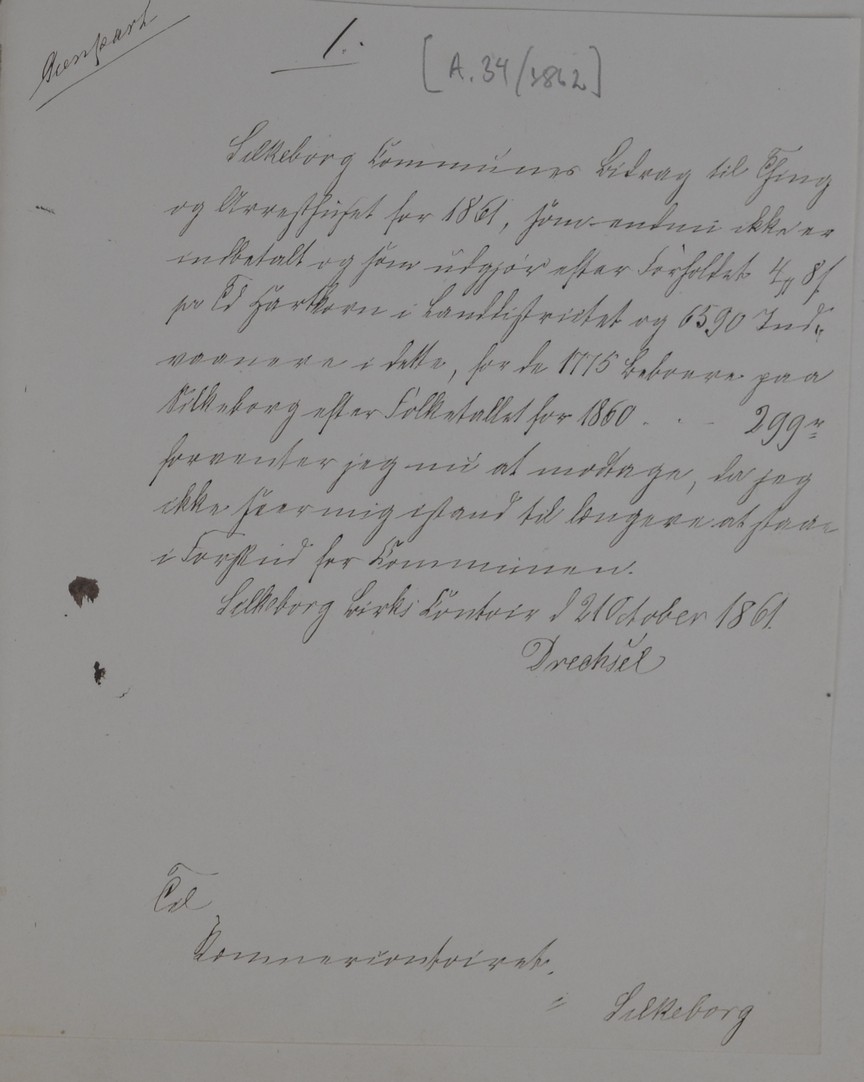 Genpart
1.
[A. 34/1862]
Silkeborg Communes Bidrag til Thing
og Arresthuset for 1861, som endnu ikke er
indbetalt og som udgjør efter Forholdet 4 # 8 s
pr Td Hartkorn i Landdistrictet og 6590 Ind-
vaanere i dette, for de 1775 Beboere paa
Silkeborg efter Folketallet for 1860 . . - 299 r
forventer jeg nu at modtage, da jeg
ikke seer mig istand til længere at staa
i Forskud for Communen.
Silkeborg Birks Contoir d 21 October 1861.
Drechsel
Til
Kammercontoiret.
" Silkeborg